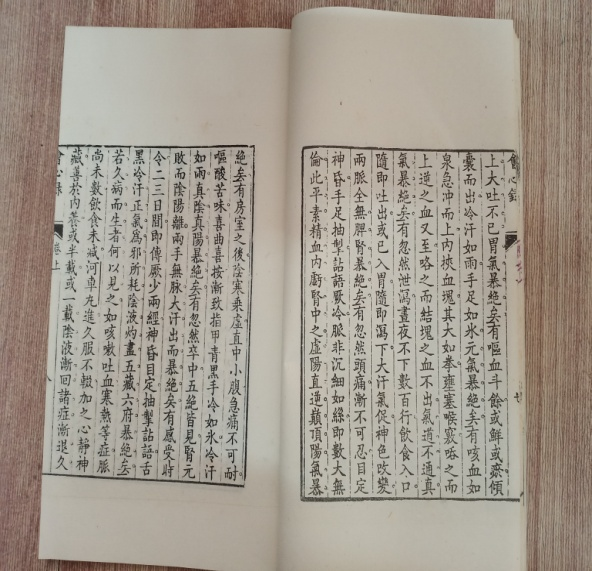 會心錄
上大吐不已胃氣暴絕矣有嘔血斗餘或鮮或瘀傾
囊而出冷汗如雨手足如氷元氣暴絕矣有咳血如
泉急冲而上內挾血塊其大如拳壅塞喉竅咯之而
上逆之血又至咯之而結塊之血不出氣道不通真
氣暴絕矣有忽然泄瀉晝夜不下數百行飲食入口
隨即吐出或已入胃隨即瀉下大汗氣促神色改變
兩脈全無脾腎暴絕矣有忽然頭痛漸不可忍目定
神昏手足抽掣詀語厥冷脈非沉細如絲即數大無
倫此平素精血內虧腎中之虛陽直逆巔頂陽氣暴
絕矣有房室之後陰寒乘虛直中小腹急痛不可耐
嘔酸苦味喜曲喜按漸致指甲青黑手冷如氷冷汗
如雨真陰真陽暴絕矣有忽然卒中五絕皆見腎元
敗而陰陽離兩手無脈大汗出而暴絕矣有感受時
令二三日間即傳厥少兩經神昏目定抽掣詀語舌
黑冷汗正氣爲邪所耗陰液灼盡五藏六府暴絕矣
若久病而生者何以見之如咳嗽吐血寒熱等症脈
尚未數飲食未減河車丸進久服不輟加之心靜神
藏善於內養或半載或一載陰液漸回諸症漸退久
會心錄 卷上